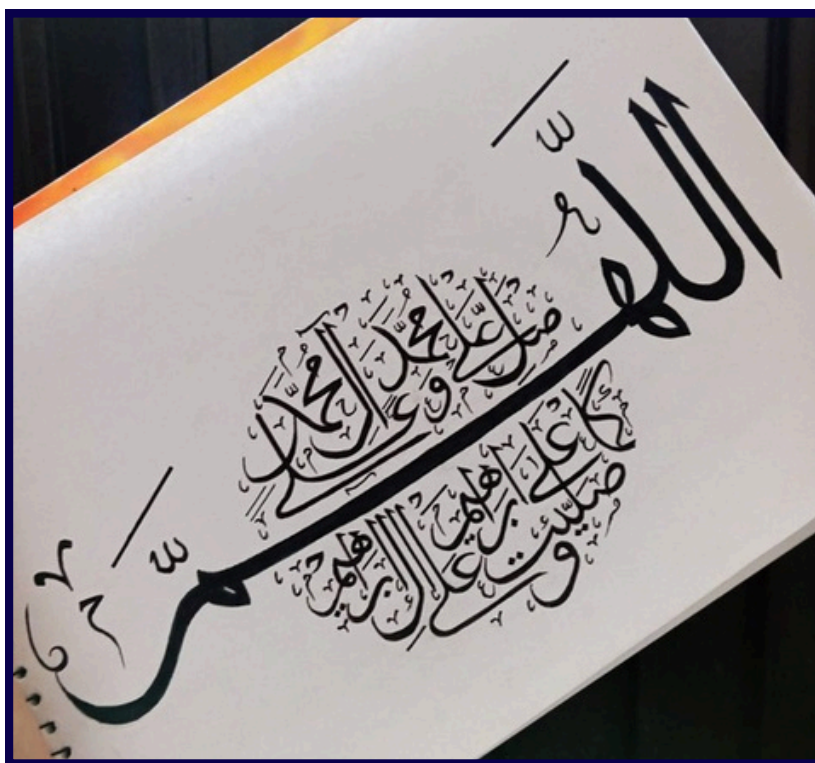 اللّٰهمّ
صلّ على محمّد
وعلى آل محمّد
كما صلّيت على إبراهيم
وعلى آل إبراهيم